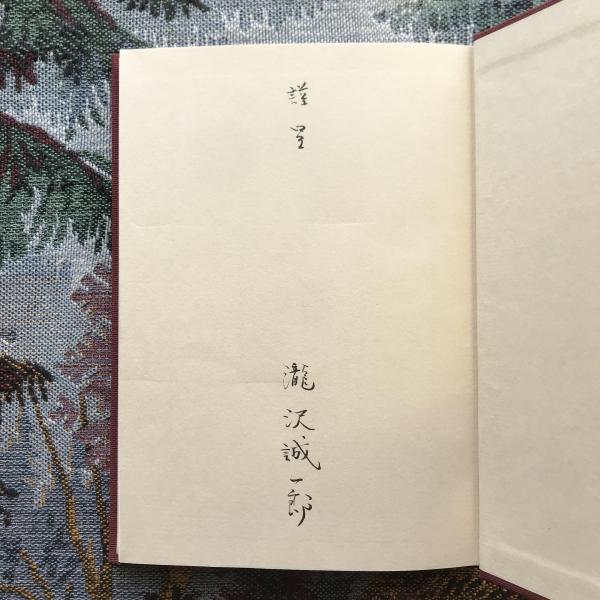 謹呈
瀧沢誠一郎